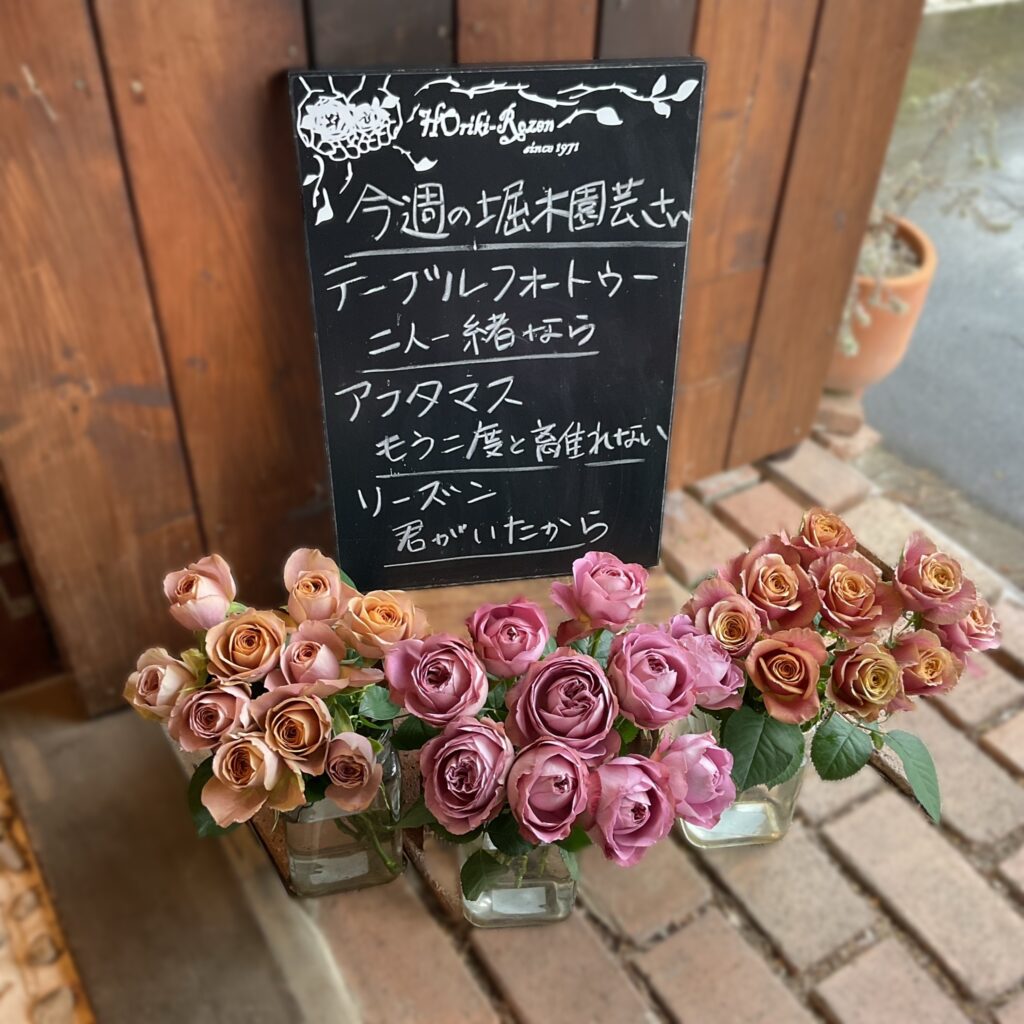 HOriki-Rozen
since 1971
今週の堀木園芸さん
テーブルフォートゥー
二人一緒なら
アフタマス
もう二度と離れない
リーズン
君がいたから